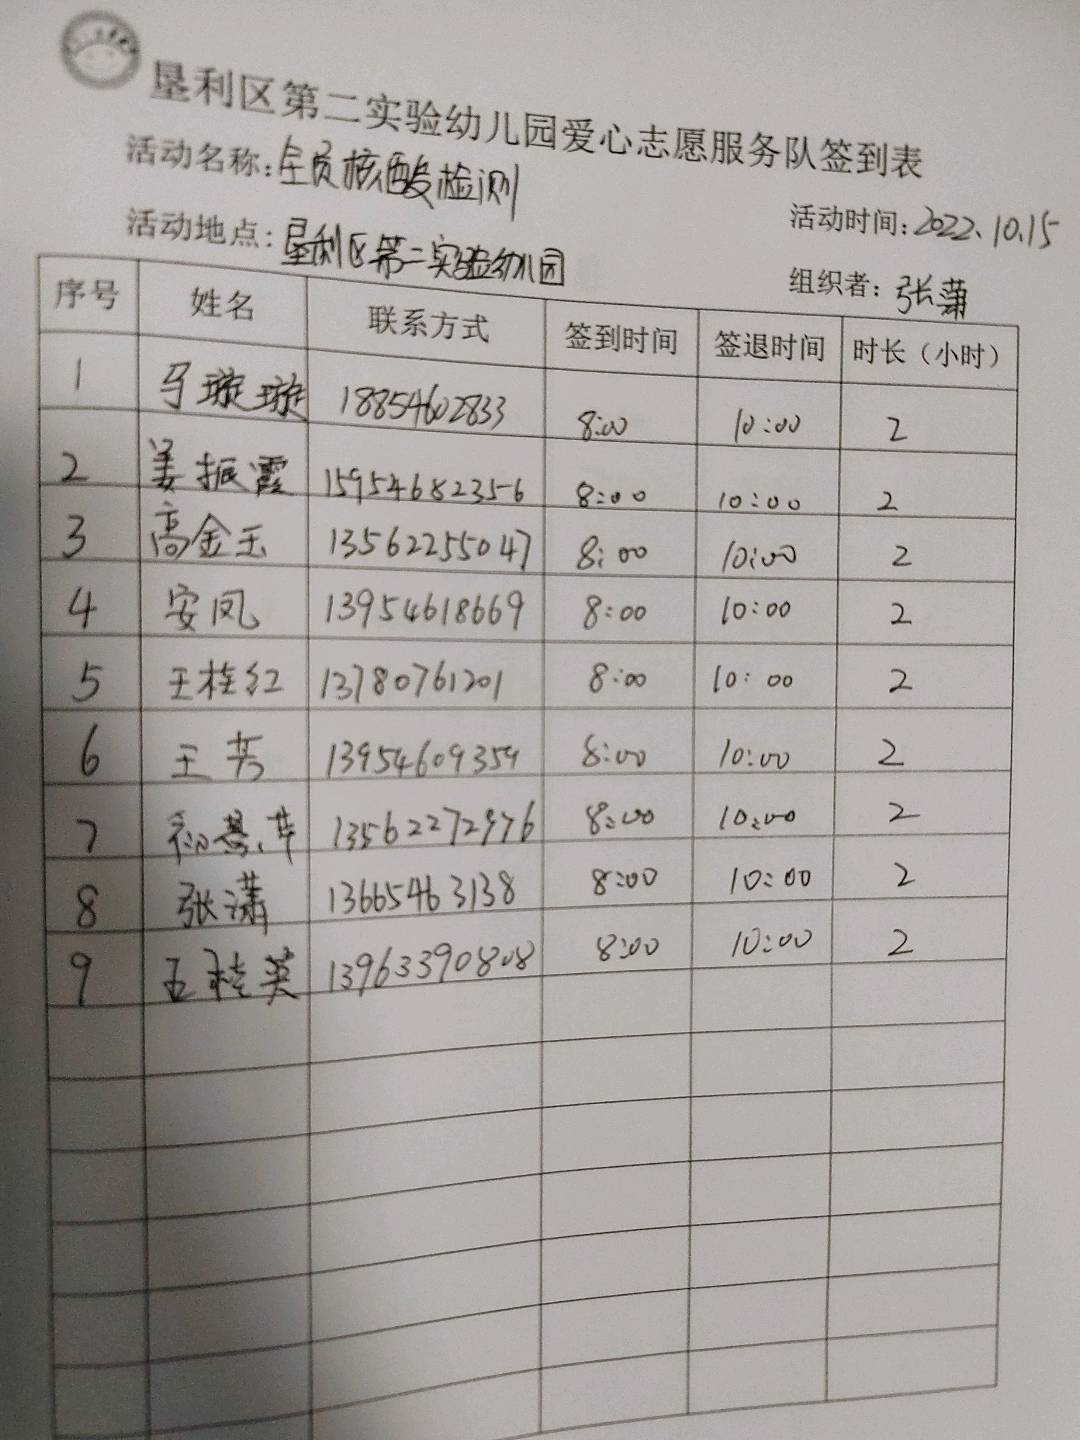 垦利区第二实验幼儿园爱心志愿服务队签到表
活动名称:全员核酸检测
活动时间:2022.10.15
活动地点:垦利区第二实验幼儿园
组织者:张潇
序号 姓名 联系方式 签到时间 签退时间 时长(小时)
1 马璇璇 18854602833 8:00 10:00 2
2 姜振霞 15954682356 8:00 10:00 2
3 高金玉 13562255047 8:00 10:00 2
4 安凤 13954618669 8:00 10:00 2
5 王桂红 13780761201 8:00 10:00 2
6 王芳 13954609359 8:00 10:00 2
7 13562272976 8:00 10:00 2
8 张潇 13665463138 8:00 10:00 2
9 王桂英 13963390808 8:00 10:00 2